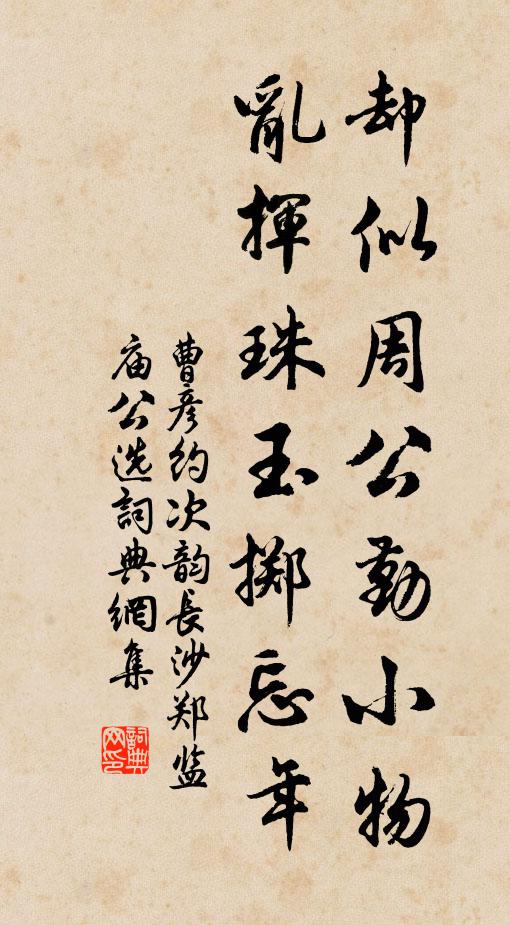 却似周公勤小物
亂揮珠玉掷忘年
曹彦约次韵長沙郑监
庙公选詞典網集
詞典网印